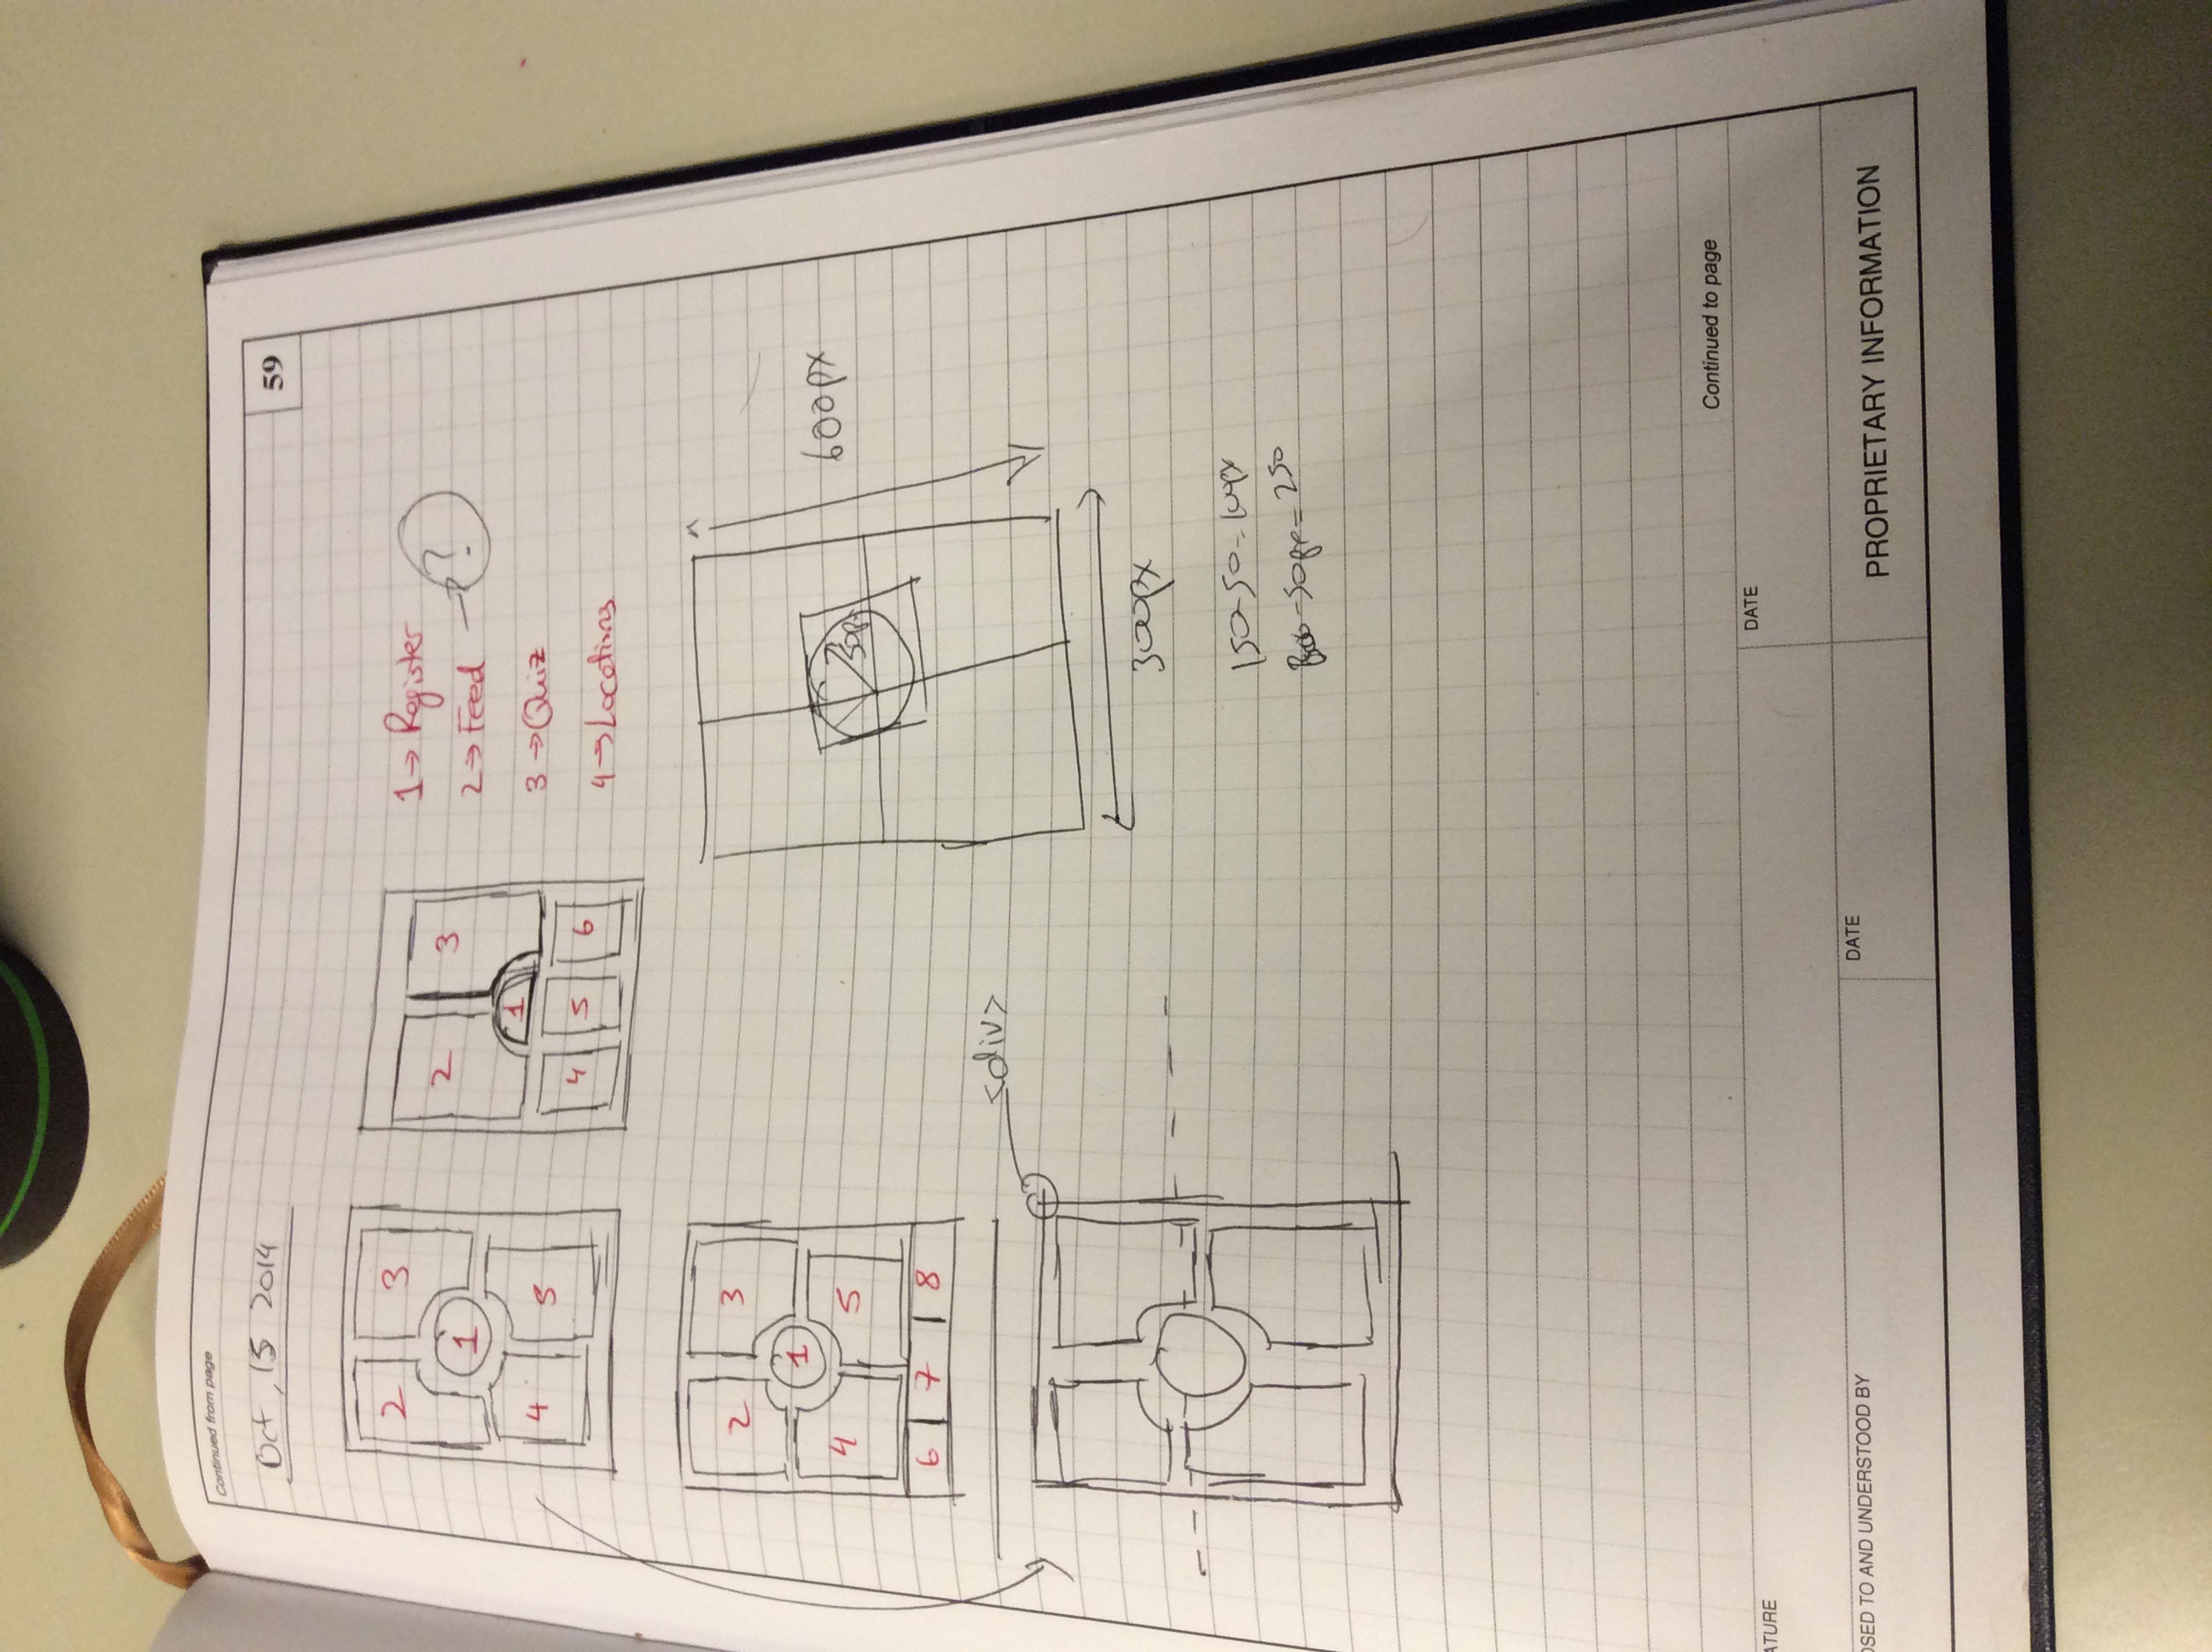 Continued from page
59
Oct, 15 2014
2 3
1
4 5
2 3
1
4 5 6
1 → Register
2 → Feed → ?
3 → Quiz
4 → Locations
2 3
1
4 5
6 7 8
50px
600px
300px
<div>
150-50=100px
-50px=250
Continued to page
ATURE
DATE
OSED TO AND UNDERSTOOD BY
DATE
PROPRIETARY INFORMATION